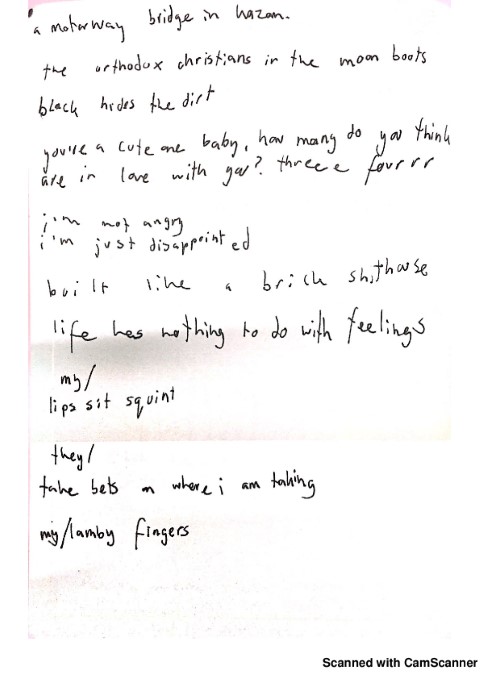 a motorway bridge in hazom.
the orthodox christians in the moon boots
black hides the dirt
you're a cute one baby, how many do you think
are in love with you? threee fourrr
i'm not angry
i'm just disappointed
built like a brick shithouse
life has nothing to do with feelings
my/
lips sit squint
they/
take bets on where i am taking
my/lamby fingers
Scanned with CamScanner